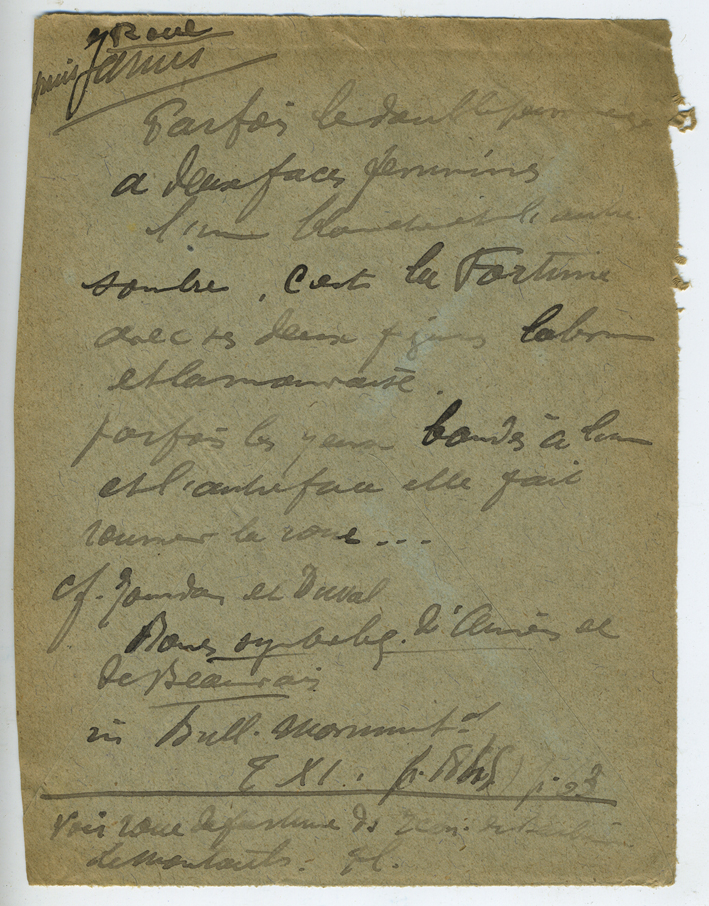 Roue
puis Janus
Parfois le double personnage
a deux faces féminines
l'une blanche et l'autre
sombre, c'est la Fortune
avec ses deux figures la bonne
et la mauvaise.
parfois les yeux bandés à l'une
et l'autre face elle fait
tourner la roue...
cf. Jourdain et Duval
Roues symboliq. d'Amiens et
de Beauvais
in Bull. Monumental
T XI. p.
Voir roue de fortune ds